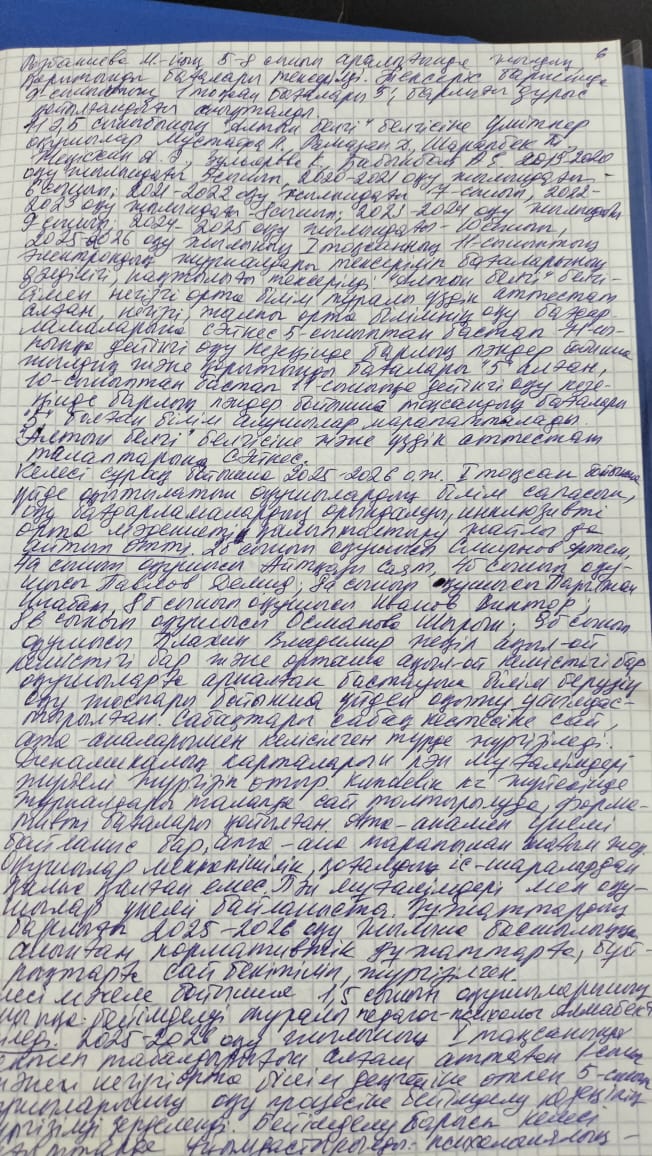 6
М-ның 5-8 сынып аралығында жылдық
қорытынды бағалары тексерілді. Тексеріс барысында
9 сыныптың 1 тоқсан бағалары 5, барлығы дұрыс
қойылғандығы анықталды.
11 сыныбының "Алтын белгі" белгісіне үміткер
оқушылар Мустафа Н, Рамазан Д, Шарапбек Т,
2019-2020
оқу жылындағы 5 сынып, 2020-2021 оқу жылындағы
6 сынып, 2021-2022 оқу жылындағы 7-сынып, 2022-
2023 оқу жылындағы 8 сынып, 2023-2024 оқу жылындағы
9 сынып, 2024-2025 оқу жылындағы 10 сынып,
2025-2026 оқу жылының I тоқсанның 11-сыныптың
электрондық журналдары тексеріліп бағаларының
әділдігі, нақтылығы тексерілді. "Алтын белгі" белгі-
сімен негізгі орта білім туралы үздік аттестат
алған, негізгі, жалпы орта білімнің оқу бағдар-
ламаларына сәйкес 5-сыныптан бастап 11 сы-
ныпқа дейінгі оқу кезеңінде барлық пәндер бойынша
жылдық және қорытынды бағалары "5" алған,
10-сыныптан бастап 11 сыныпқа дейінгі оқу кезе-
ңінде барлық пәндер бойынша тоқсандық бағалары
"5" болған білім алушылар марапатталады.
"Алтын белгі" белгісіне және үздік аттестат
талаптарына сәйкес.
Келесі сұрақ бойынша 2025-2026 о.ж. I тоқсан бойынша
үйде оқытылатын оқушылардың білім сапасын,
оқу бағдарламалардың орындалуы, инклюзивті
орта мәдениетін қалыптастыру жайлы да
айтып өтті. 2в сынып оқушысы Смирнов Артем,
4а сынып оқушысы Айтқали Саят, 4б сынып оқу-
шысы Павлов Демид, 8а сынып оқушысы
8г сынып оқушысы Иванов Виктор,
8в сынып оқушысы Османова Шырын, 9б сынып
оқушысы Плахин Владимир жеңіл ақыл-ой
кемістігі бар және орташа ақыл-ой кемістігі бар
оқушыларға арналған бастауыш білім берудің
оқу жоспары бойынша үйден оқыту ұйымдас-
тырылған. Сабақтары сабақ кестесіне сай,
ата-аналарымен келісілген түрде жүргізіледі.
Динамикалық карталарын пән мұғалімдері
жүйелі жүргізіп отыр. Күнделік кz жүйесінде
журналдары талапқа сай толтырылуда, форма-
тивті бағалары қойылған. Ата-анамен үнемі
байланыс бар, ата-ана тарапынан шағым жоқ.
Оқушылар мектепішілік, қоғамдық іс-шаралардан
қалыс қалған емес. Пән мұғалімдері мен оқу-
шылар үнемі байланыста. Құжаттардың
барлығы 2025-2026 оқу жылына басшылыққа
алынған, нормативтік құжаттарға, бұй-
рықтарға сай бекітіліп, жүргізілген.
мәселе бойынша 1,5 сынып оқушыларының
бейімделуі туралы педагог-психолог
2025-2026 оқу жылының I тоқсанында
мектеп табалдырығын алғаш аттаған 1 сынып
және негізгі орта білім деңгейіне өткен 5-сынып
оқушыларының оқу процесіне бейімделу кезеңінің
жүргізілуі зерделенді. Бейімделу барысы келесі
ұйымдастырылды: психологиялық-